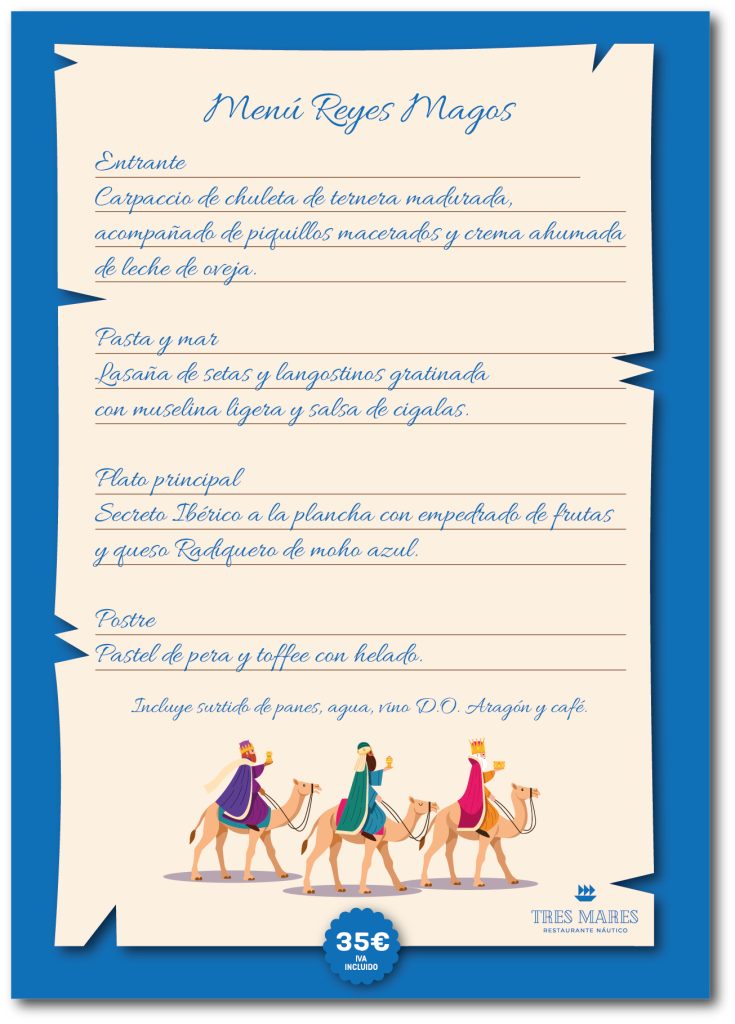 Menú Reyes Magos
Entrante
Carpaccio de chuleta de ternera madurada,
acompañado de piquillos macerados y crema ahumada
de leche de oveja.
Pasta y mar
Lasaña de setas y langostinos gratinada
con muselina ligera y salsa de cigalas.
Plato principal
Secreto Ibérico a la plancha con empedrado de frutas
y queso Radiquero de moho azul.
Postre
Pastel de pera y toffee con helado.
Incluye surtido de panes, agua, vino D.O. Aragón y café.
TRES MARES
RESTAURANTE NÁUTICO
35€
IVA
INCLUIDO